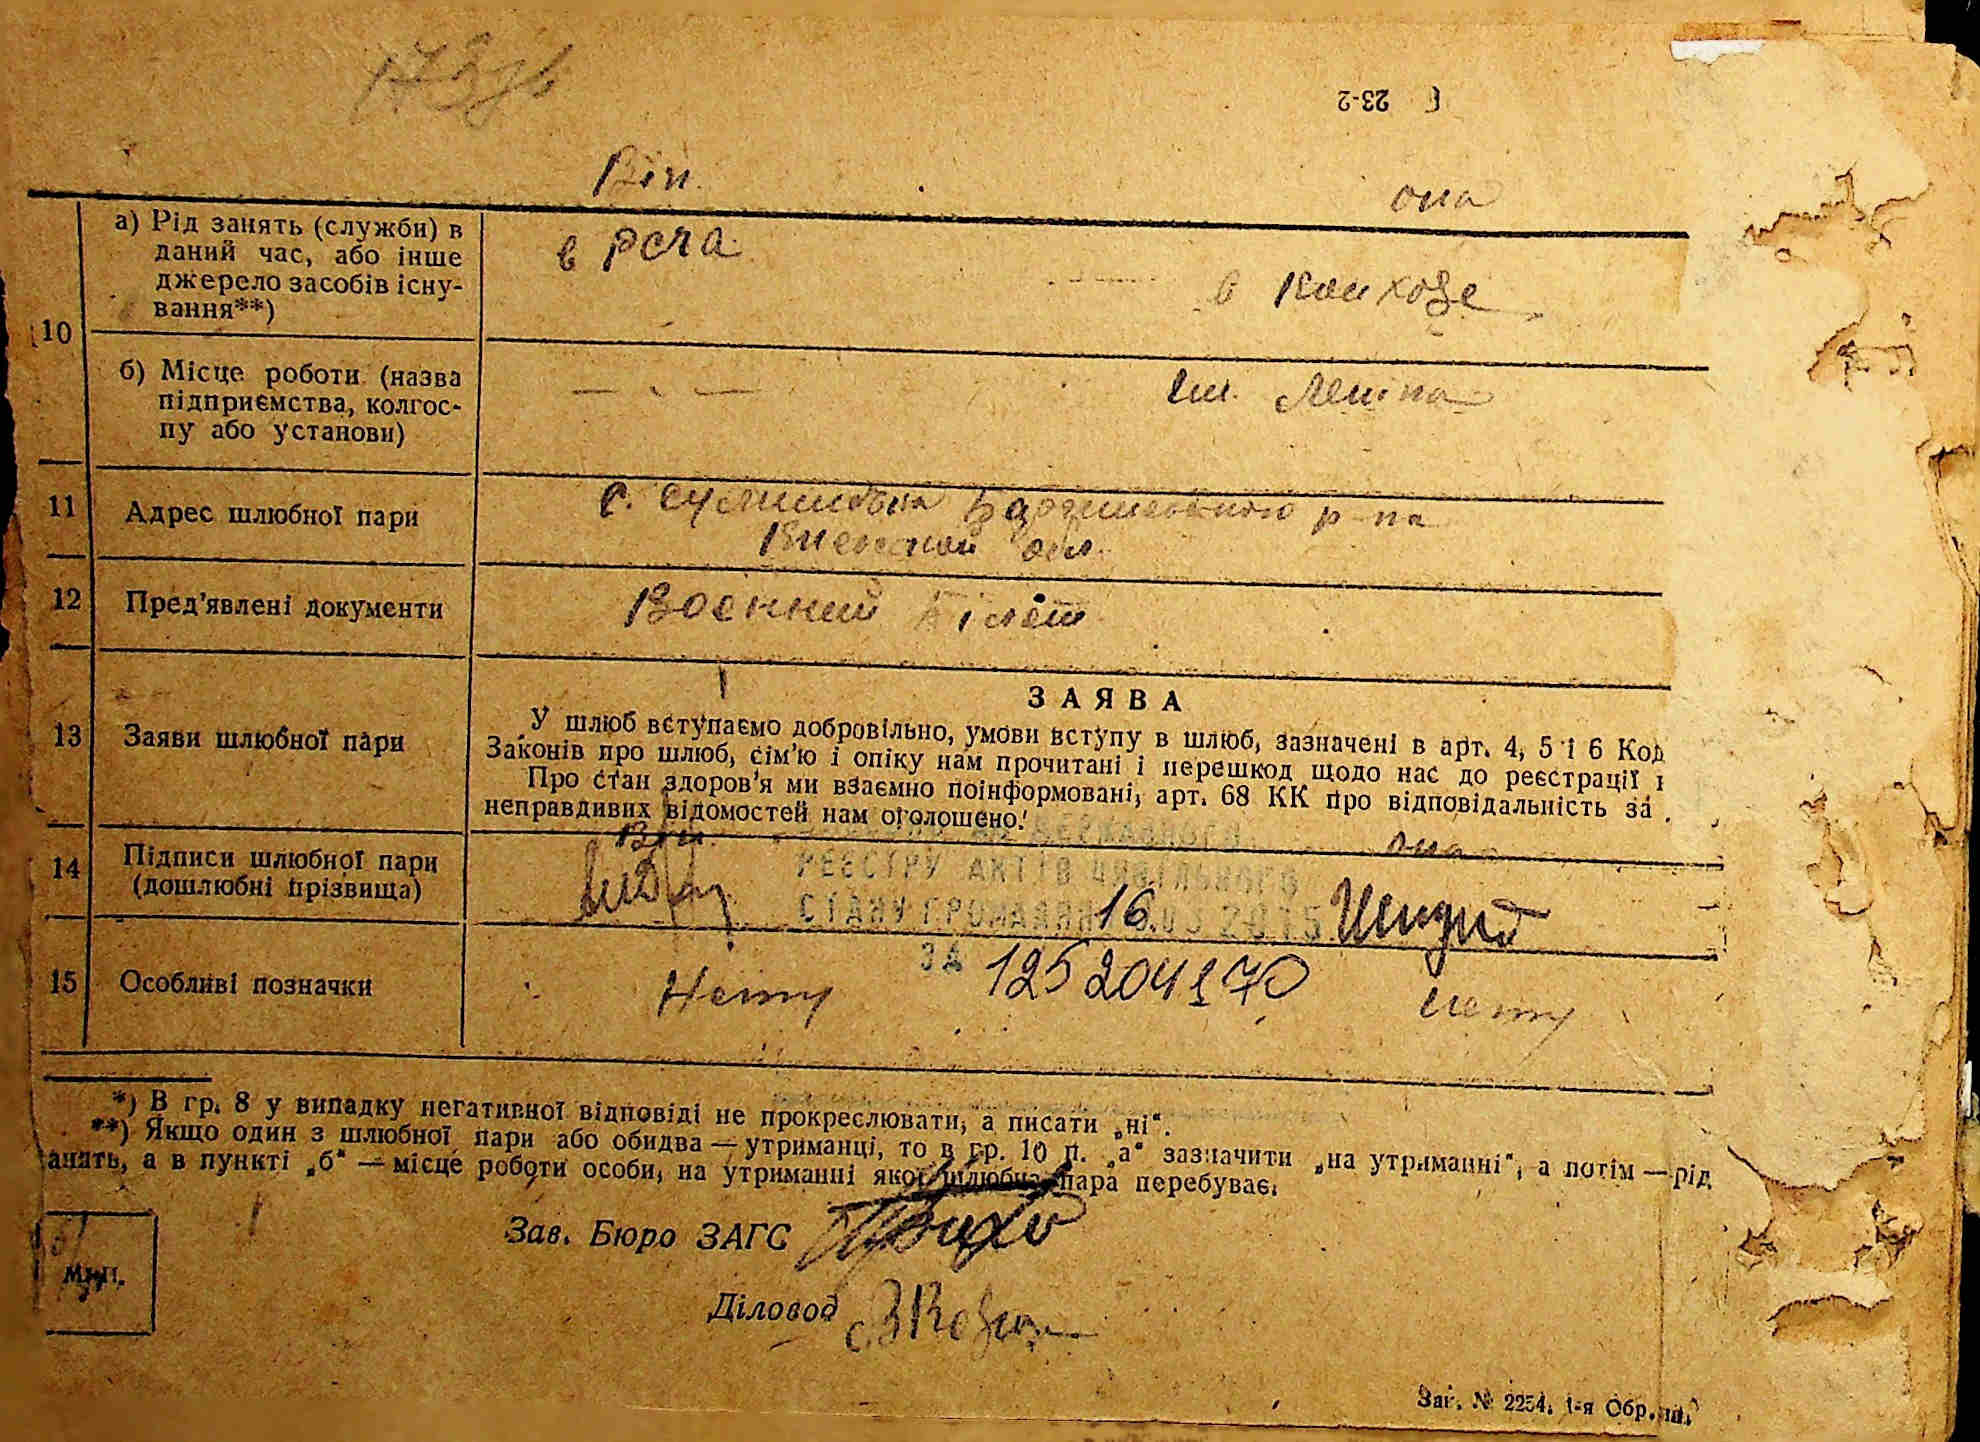 23-2
Він
она
10
а) Рід занять (служби) в
даний час, або інше
джерело засобів існу-
вання**)
в РСЧА
в Колхозе
б) Місце роботи (назва
підприємства, колгос-
пу або установи)
— „ —
Им. Леніна
11
Адрес шлюбної пари
с. р-на
Киевской обл.
12
Пред'явлені документи
Воєнний білет
13
Заяви шлюбної пари
ЗАЯВА
У шлюб вступаємо добровільно, умови вступу в шлюб, зазначені в арт. 4, 5 і 6 Код
Законів про шлюб, сім'ю і опіку нам прочитані і перешкод щодо нас до реєстрації
Про стан здоров'я ми взаємно поінформовані, арт. 68 КК про відповідальність за
неправдивих відомостей нам оголошено.
14
Підписи шлюбної пари
(дошлюбні прізвища)
Він
она
ДЕРЖАВНОГО
РЕЄСТРУ АКТІВ ЦИВІЛЬНОГО
СТАНУ ГРОМАДЯН 16.03 2015
ЗА 125204170
15
Особливі позначки
Нету
нету
*) В гр. 8 у випадку негативної відповіді не прокреслювати, а писати „ні“.
**) Якщо один з шлюбної пари або обидва — утриманці, то в гр. 10 п. „а“ зазначити „на утриманні“, а потім — рід
анять, а в пункті „б“ — місце роботи особи, на утриманні якої шлюбна пара перебуває.
Зав. Бюро ЗАГС
М. П.
Діловод
Заг. № 2254. 1-я Обр. тип.